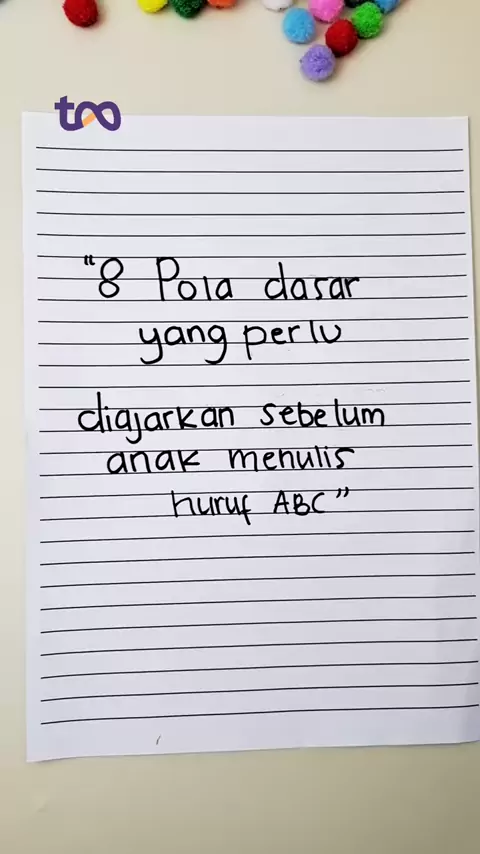 too
"8 Pola dasar
yang perlu
diajarkan sebelum
anak menulis
huruf ABC"